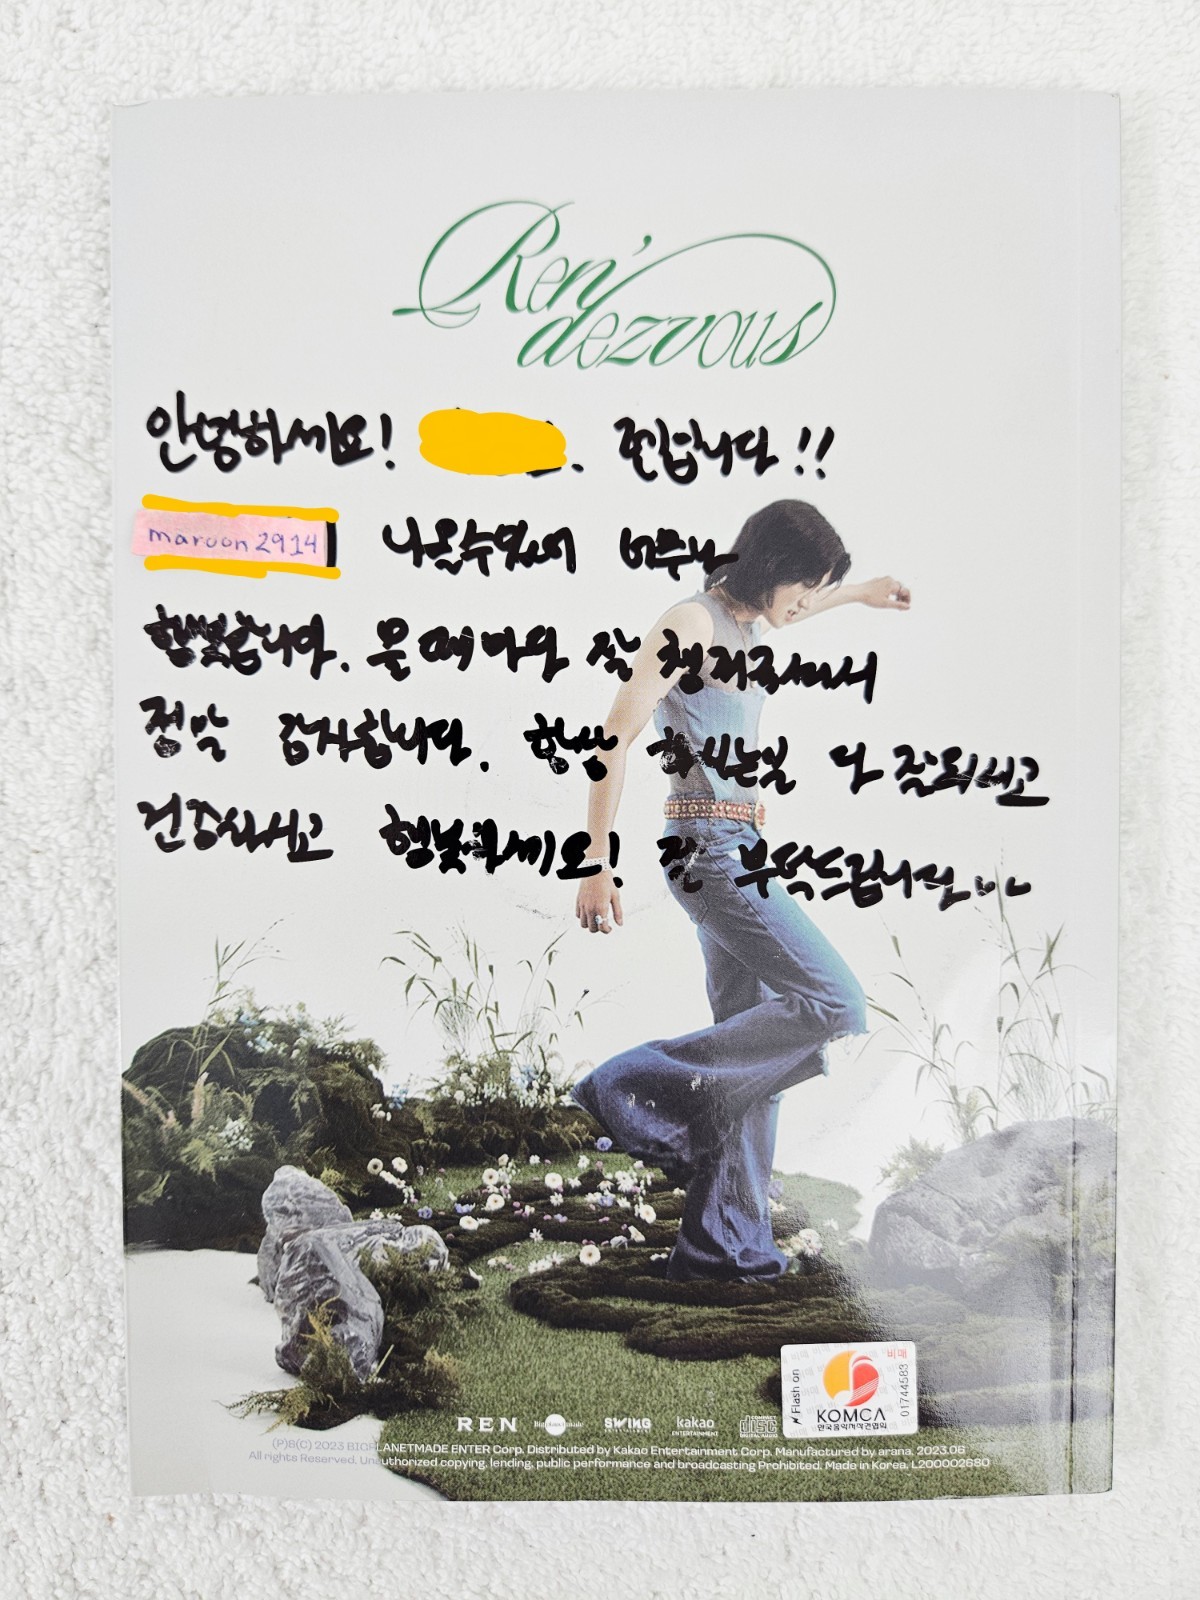 Ren'
dezvous
안녕하세요! 입니다!!
maroon2914 나올수있어 너무나
행복합니다. 올때마다 잘 챙겨주셔서
정말 감사합니다. 항상 하시는일 다 잘되시고
건강하시고 행복하세요! 잘 부탁드립니다
비매
Flash on
KOMCA
한국음악저작권협회
01744583
REN SWING kakao
ENTERTAINMENT
COMPACT disc DIGITAL AUDIO
(P)&(C) 2023 BIGPLANETMADE ENTER Corp. Distributed by Kakao Entertainment Corp. Manufactured by arana. 2023.06
All rights Reserved. Unauthorized copying, lending, public performance and broadcasting Prohibited. Made in Korea. L200002680